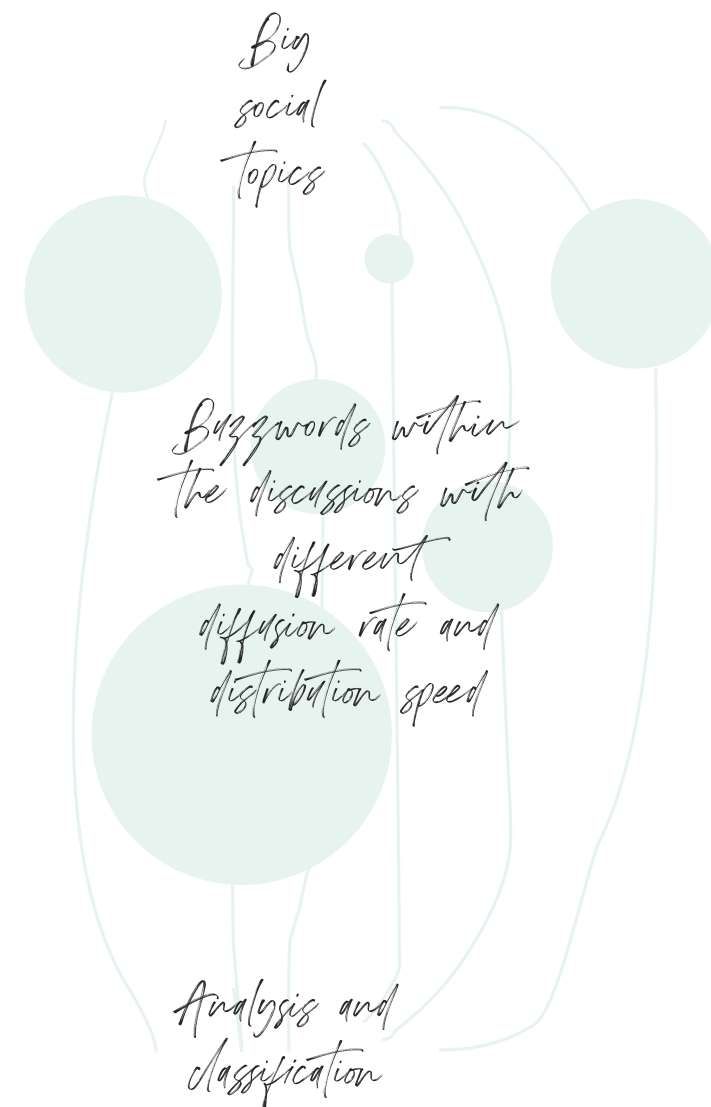 Big
social
topics
Buzzwords within
the discussions with
different
diffusion rate and
distribution speed
Analysis and
classification